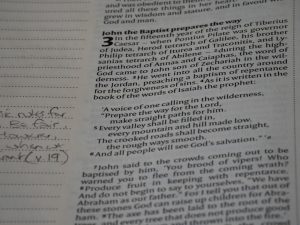 and was obedient to them.
ured all these things in her heart.
grew in wisdom and stature, and in favour
God and man.
John the Baptist prepares the way
3 In the fifteenth year of the reign of Tiberius
Caesar – when Pontius Pilate was governor
of Judea, Herod tetrarch of Galilee, his brother
Philip tetrarch of Iturea and Traconitis, and Ly-
sanias tetrarch of Abilene – 2 during the high-
priesthood of Annas and Caiaphas, the word of
God came to John son of Zechariah in the wil-
derness. 3 He went into all the country around
the Jordan, preaching a baptism of repentance
for the forgiveness of sins. 4 As it is written in the
book of the words of Isaiah the prophet:
'A voice of one calling in the wilderness,
"Prepare the way for the Lord,
make straight paths for him.
5 Every valley shall be filled in,
every mountain and hill made low.
The crooked roads shall become straight,
the rough ways smooth.
6 And all people will see God's salvation."'
7 John said to the crowds coming out to be
baptised by him, 'You brood of vipers! Who
warned you to flee from the coming wrath?
8 Produce fruit in keeping with repentance.
And do not begin to say to yourselves, "We have
Abraham as our father." For I tell you that out of
these stones God can raise up children for Abra-
ham. 9 The axe has been laid to the root of the
trees, and every tree that does not produce good
fruit will be cut down and thrown into the fire.'
rules for
(v.19)